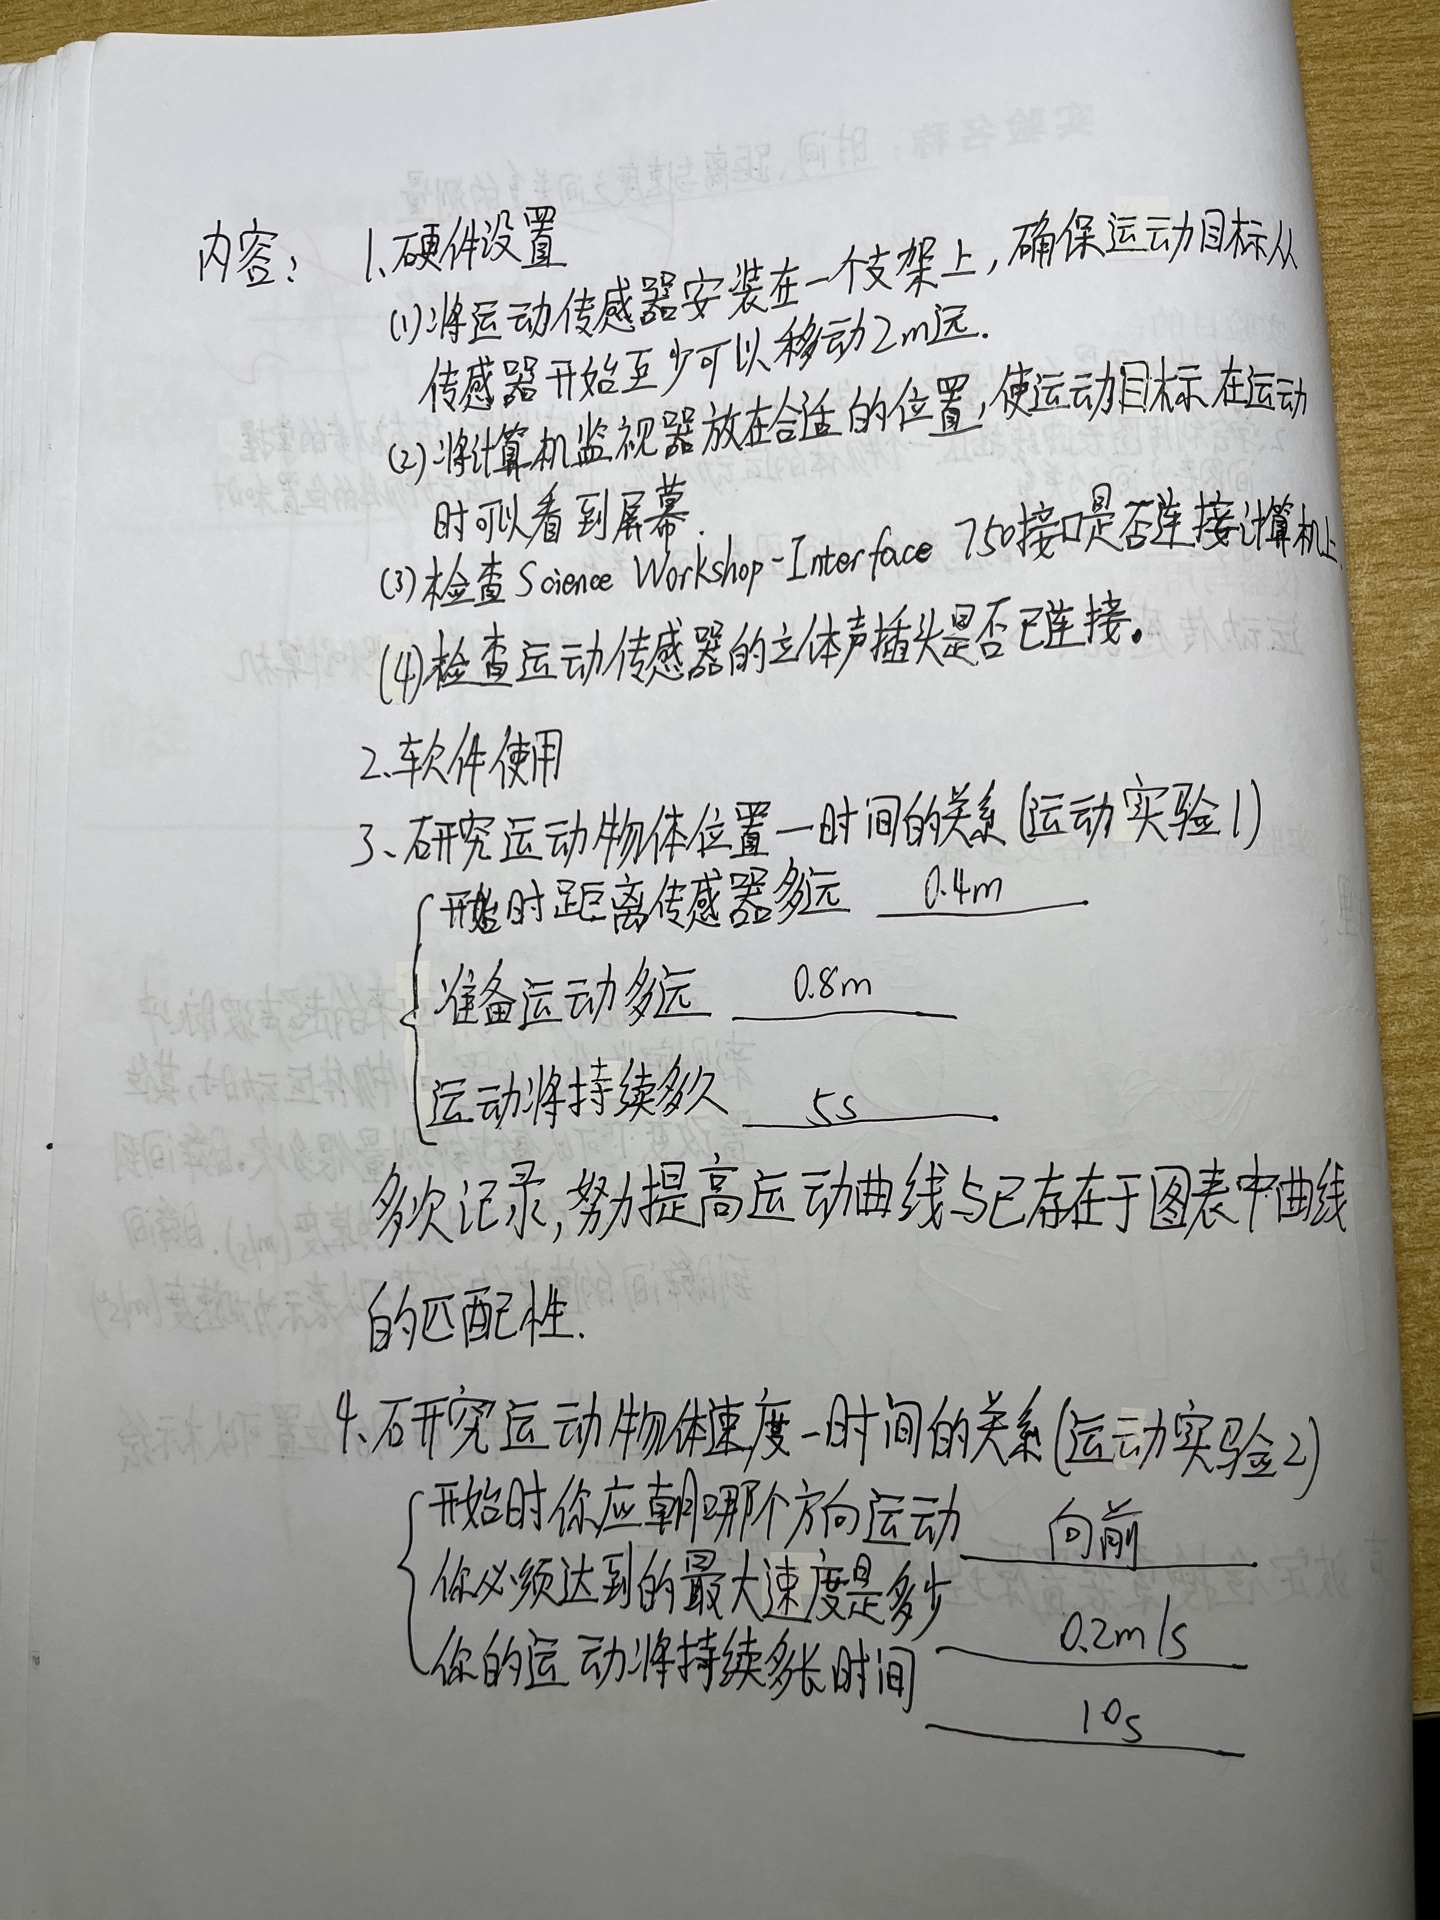 内容: 1.硬件设置
(1)将运动传感器安装在一个支架上,确保运动目标从
传感器开始至少可以移动2m远.
(2)将计算机监视器放在合适的位置,使运动目标在运动
时可以看到屏幕.
(3)检查Science Workshop-Interface 750接口是否连接计算机上.
(4)检查运动传感器的立体声插头是否已连接。
2.软件使用
3、研究运动物体位置—时间的关系(运动实验1)
开始时距离传感器多远 0.4m
准备运动多远 0.8m
运动将持续多久 5s
多次记录,努力提高运动曲线与已存在于图表中曲线
的匹配性.
4.研究运动物体速度—时间的关系(运动实验2)
开始时你应朝哪个方向运动 向前
你必须达到的最大速度是多少 0.2m/s
你的运动将持续多长时间 10s